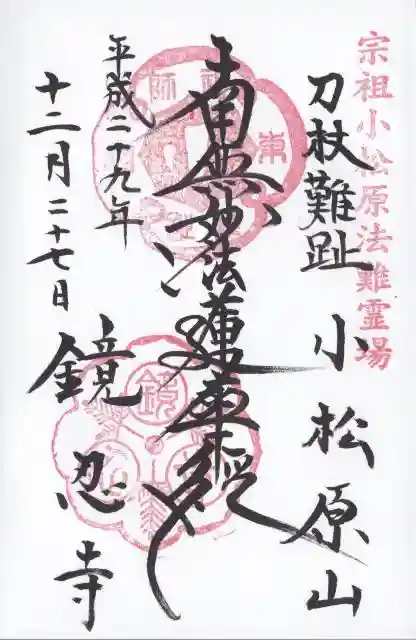 宗祖小松原法難霊場
刀杖難趾 小松原山
南無妙法蓮華経
平成二十九年
十二月二十七日
鏡忍寺
鏡